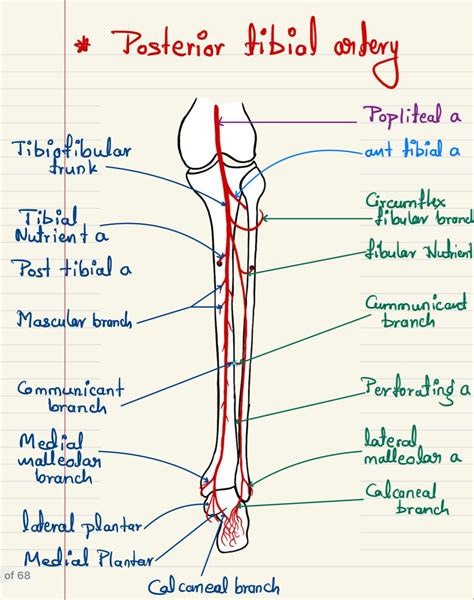 * Posterior tibial artery
Popliteal a
Tibiofibular
trunk
ant tibial a
Circumflex
fibular branch
Tibial
Nutrient a
fibular Nutrient
Post tibial a
Mascular branch
Cummunicant
branch
Communicant
branch
Perforating a
Medial
malleolar
branch
lateral
malleolar a
Calcaneal
branch
lateral plantar
Medial Plantar
Calcaneal branch
of 68